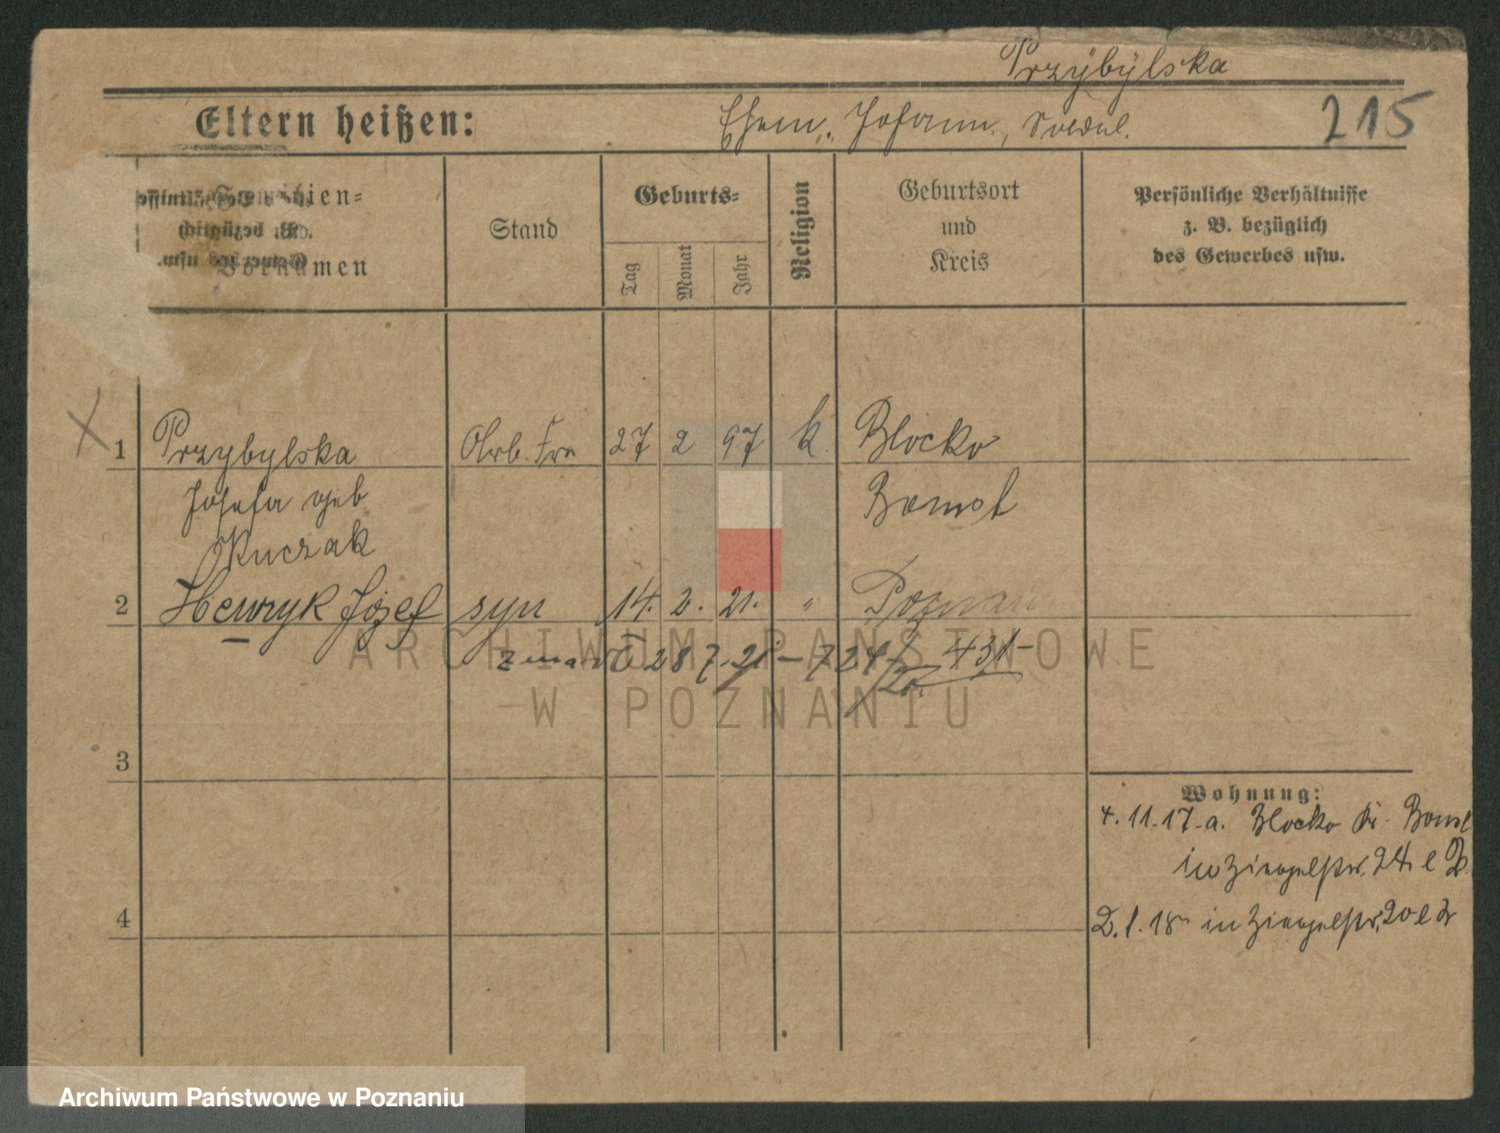 Przÿbÿlska
Eltern heißen:
Ehem. Johann, Soldat.
215
Familien-
und
Vornamen
Stand
Geburts-
Tag
Monat
Jahr
Religion
Geburtsort
und
Kreis
Persönliche Verhältnisse
z. B. bezüglich
des Gewerbes usw.
1 Przybylska Arb. Fra 27 2 97 k. Blocko
Josefa geb
Kuczak
Bomst
2 Henryk Józef syn 14. 2. 21. " Poznań
zmarł 28 7. 21 - 724/ 431-
3
Wohnung:
4. 11. 17 a. Blocko Kr. Bomst
in Ziegelstr. 24
4
2. 1. 18 in Ziegelstr. 20
ARCHIWUM PAŃSTWOWE
W POZNANIU
Archiwum Państwowe w Poznaniu